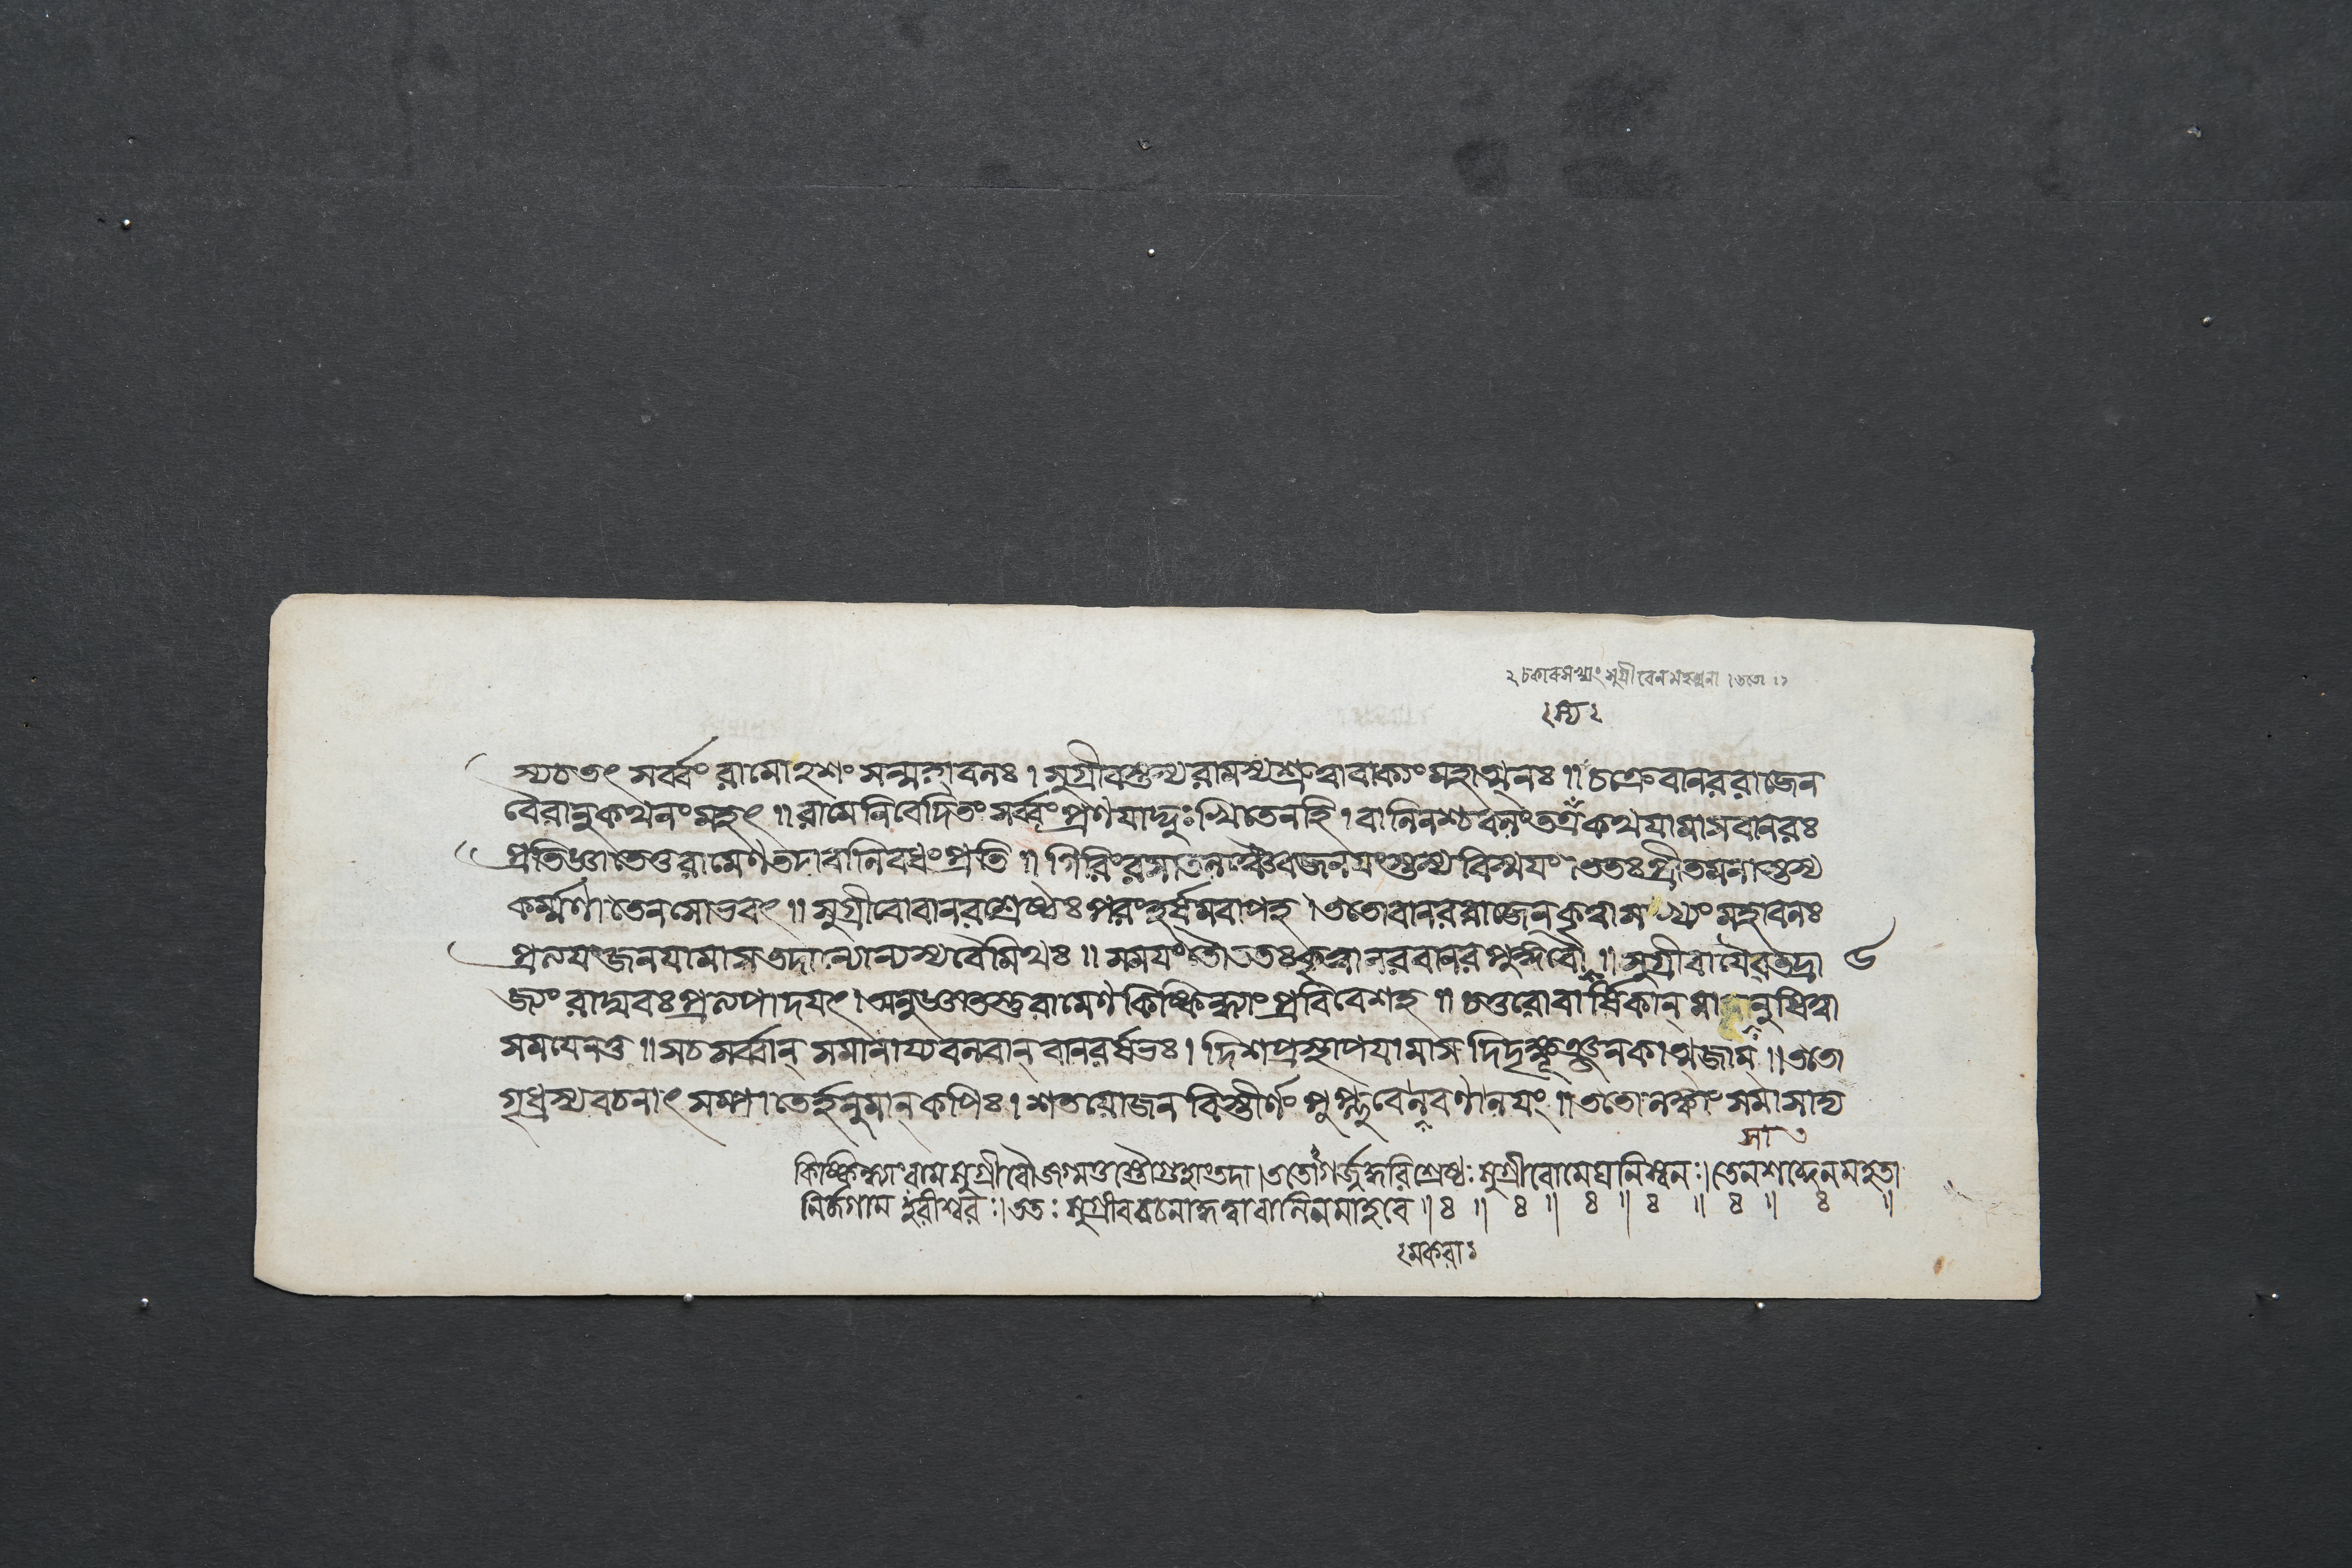 ২ চকার সখ্যং সুগ্রীবেন মহাত্মনা । ততো ১১
২ স্য ২
স্যচতৎ সর্ব্বং রামোহশং সন্মহাবলঃ । সুগ্রীবস্তুস্য রামস্য শ্রুত্বা বাক্যং মহাত্মনঃ ॥ চক্রে বানররাজেন
বৈরানুকথনং মহৎ ॥ রামে নিবেদিতং সর্ব্বং প্রণযাদ্দুঃখিতেন হি । বালিনশ্চ বলং তত্র কথযামাস বানরঃ
প্রতিজ্ঞাতেতু রামেণ তদা বালিবধং প্রতি ॥ গিরিং রসাতলঞ্চৈব জনযংস্তস্য বিস্মযং । ততঃ প্রীতমনাস্তস্য
কর্ম্মণা তেন সোভবৎ ॥ সুগ্রীবো বানরশ্রেষ্ঠঃ পরং হর্ষমবাপহ । ততো বানররাজেন কৃত্বা সখ্যং মহাবলঃ
প্রলযঞ্জনযামাস তদান্যোন্যস্য বৈ মিথঃ ॥ সমযং তৌ ততঃ কৃত্বা নরবানরপুঙ্গবৌ ॥ সুগ্রীবাযৈব তদ্রা ৬
জ্যং রাঘবঃ প্রলপাদযৎ । অনুজ্ঞাতস্তু রামেণ কিষ্কিন্ধ্যাং প্রবিবেশহ ॥ চতুরো বার্ষিকান্ মাসানুষিত্বা
সমযেনতু ॥ সচ সর্ব্বান্ সমানায্য বলবান্ বানরর্ষভঃ । দিশ প্রস্থাপযামাস দিদৃক্ষুঞ্জনকাত্মজাম্ ॥ ততো
গৃধ্রস্য বচনাৎ সম্পাতের্হনুমান্ কপিঃ । শতযোজনবিস্তীর্ণং পুপ্লুবে লবণালযং ॥ ততো লঙ্কাং সমাসাদ্য
কিষ্কিন্ধ্যাং রামসুগ্রীবৌ জগ্মতুস্তৌ গুহাং তদা । ততোগর্জ্জদ্ধরিশ্রেষ্ঠঃ সুগ্রীবো মেঘনিস্বনঃ । তেন শব্দেন মহতা
নির্জগাম হরীশ্বরঃ । ততঃ সুগ্রীববচনাদ্ধত্বা বালিনমাহবে ॥ ৪ ॥ ৪ ॥ ৪ ॥ ৪ ॥ ৪ ॥ ৪ ॥